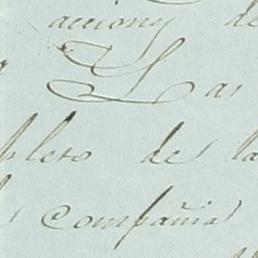 accion y de
Las
pleto de la
Compañia